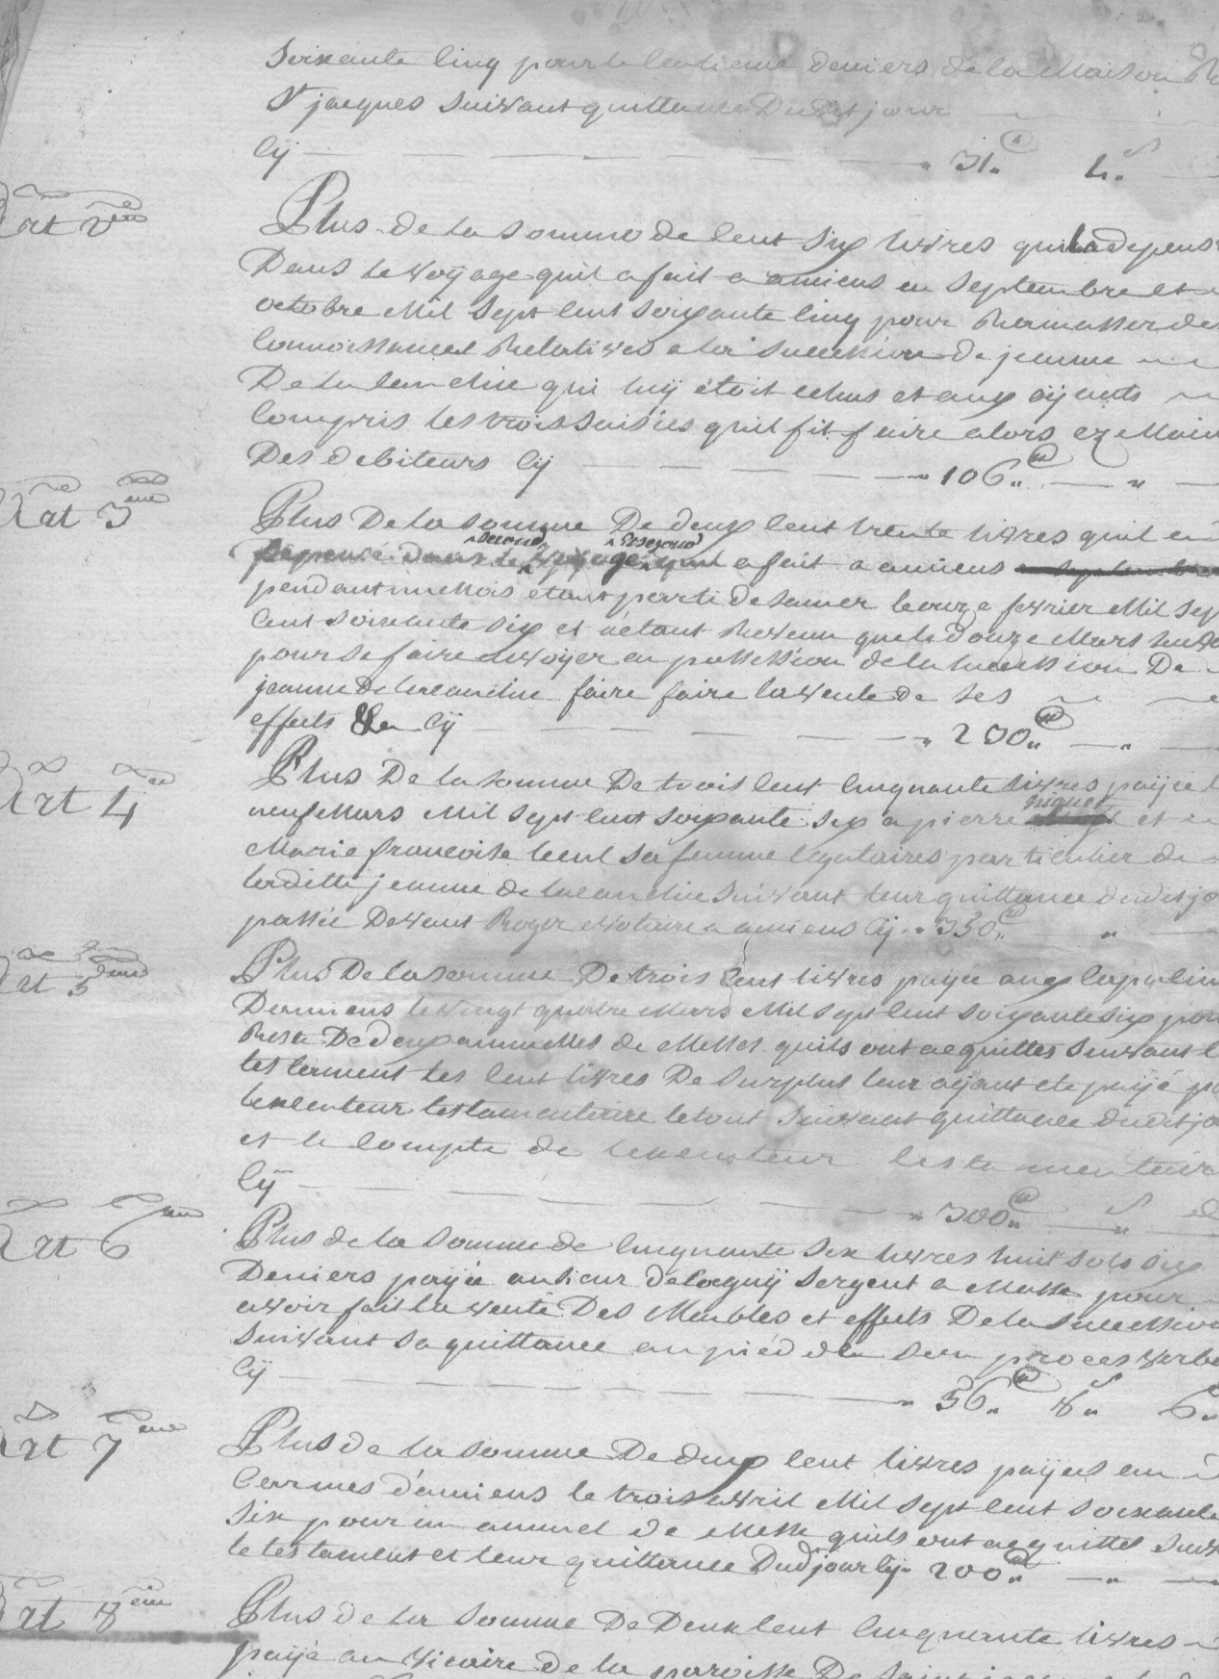 Soixante Cinq pour le Centieme deniers de la Maison
St jacques Suivant quittance Dudit jour
Cÿ 31. 4.s
Art 2eme
Plus de la Somme de Cent Six livres quil a depens
Dans le voÿage quil a fait a amiens en Septembre et
octobre Mil Sept Cent Soixante Cinq pour Ramasser des
Connoissances Relatives a la Succession de jeanne
De la lanchie qui luÿ étoit echus et aux aÿants
Compris les trois Saisies quil fit faire alors ez Main
Des debiteurs Cÿ 106.
Art 3eme
Plus De la Somme De deux Cent trente livres quil
second
depensé dans le voyage quil a fait a amiens
pendant un Mois étant parti de Samer le onze fevrier Mil Sep
Cent Soixante Six et nétant Revenu que le douze Mars
pour Se faire envoÿer en possession de la Succession De
jeanne de lalanchie faire faire la vente de Ses
effets &c Cÿ 230.
Art 4me
Plus De la Somme De trois Cent Cinquante livres paÿée
neuf Mars Mil Sept Cent Soixante Six a pierre et
Marie francoise Sa femme legataires particulier de
laditte jeanne de lalanchie Suivant leur quittance dudit jo
passée Devant Roger Notaire a amiens Cÿ 350.
Art 5eme
Plus De la Somme De trois Cent livres paÿée aux Capucins
Damiens le vingt quatre Mars Mil Sept Cent Soixante Six pour
Reste De deux annuelles de Messes quils ont acquittes Suivant l
testament les Cent livres De Surplus leur aÿant ete paÿé p
lexecuteur testamentaire le tout Suivant quittance dudit jo
et le Compte de lexecuteur testamentaire
Cÿ 300.
Art 6eme
Plus de la Somme de Cinquante Six livres huit Sols Six
Deniers paÿée au Sieur Sergent a Masse pour
avoir fait la vente Des Meubles et effets De la Succession
Suivant Sa quittance au piéd de Son proces verba
Cÿ 56. 8. 6.
Art 7eme
Plus de la Somme De deux Cent livres paÿés aux
Carmes d'amiens le trois avril Mil Sept Cent Soixante
Six pour un annuel de Messe quils ont acquittes Suiv
le testament et leur quittance Dud jour Cÿ 200.
Art 8eme
Plus de la Somme De Deux Cent Cinquante livres
paÿé au vicaire de la paroisse De Saint jac